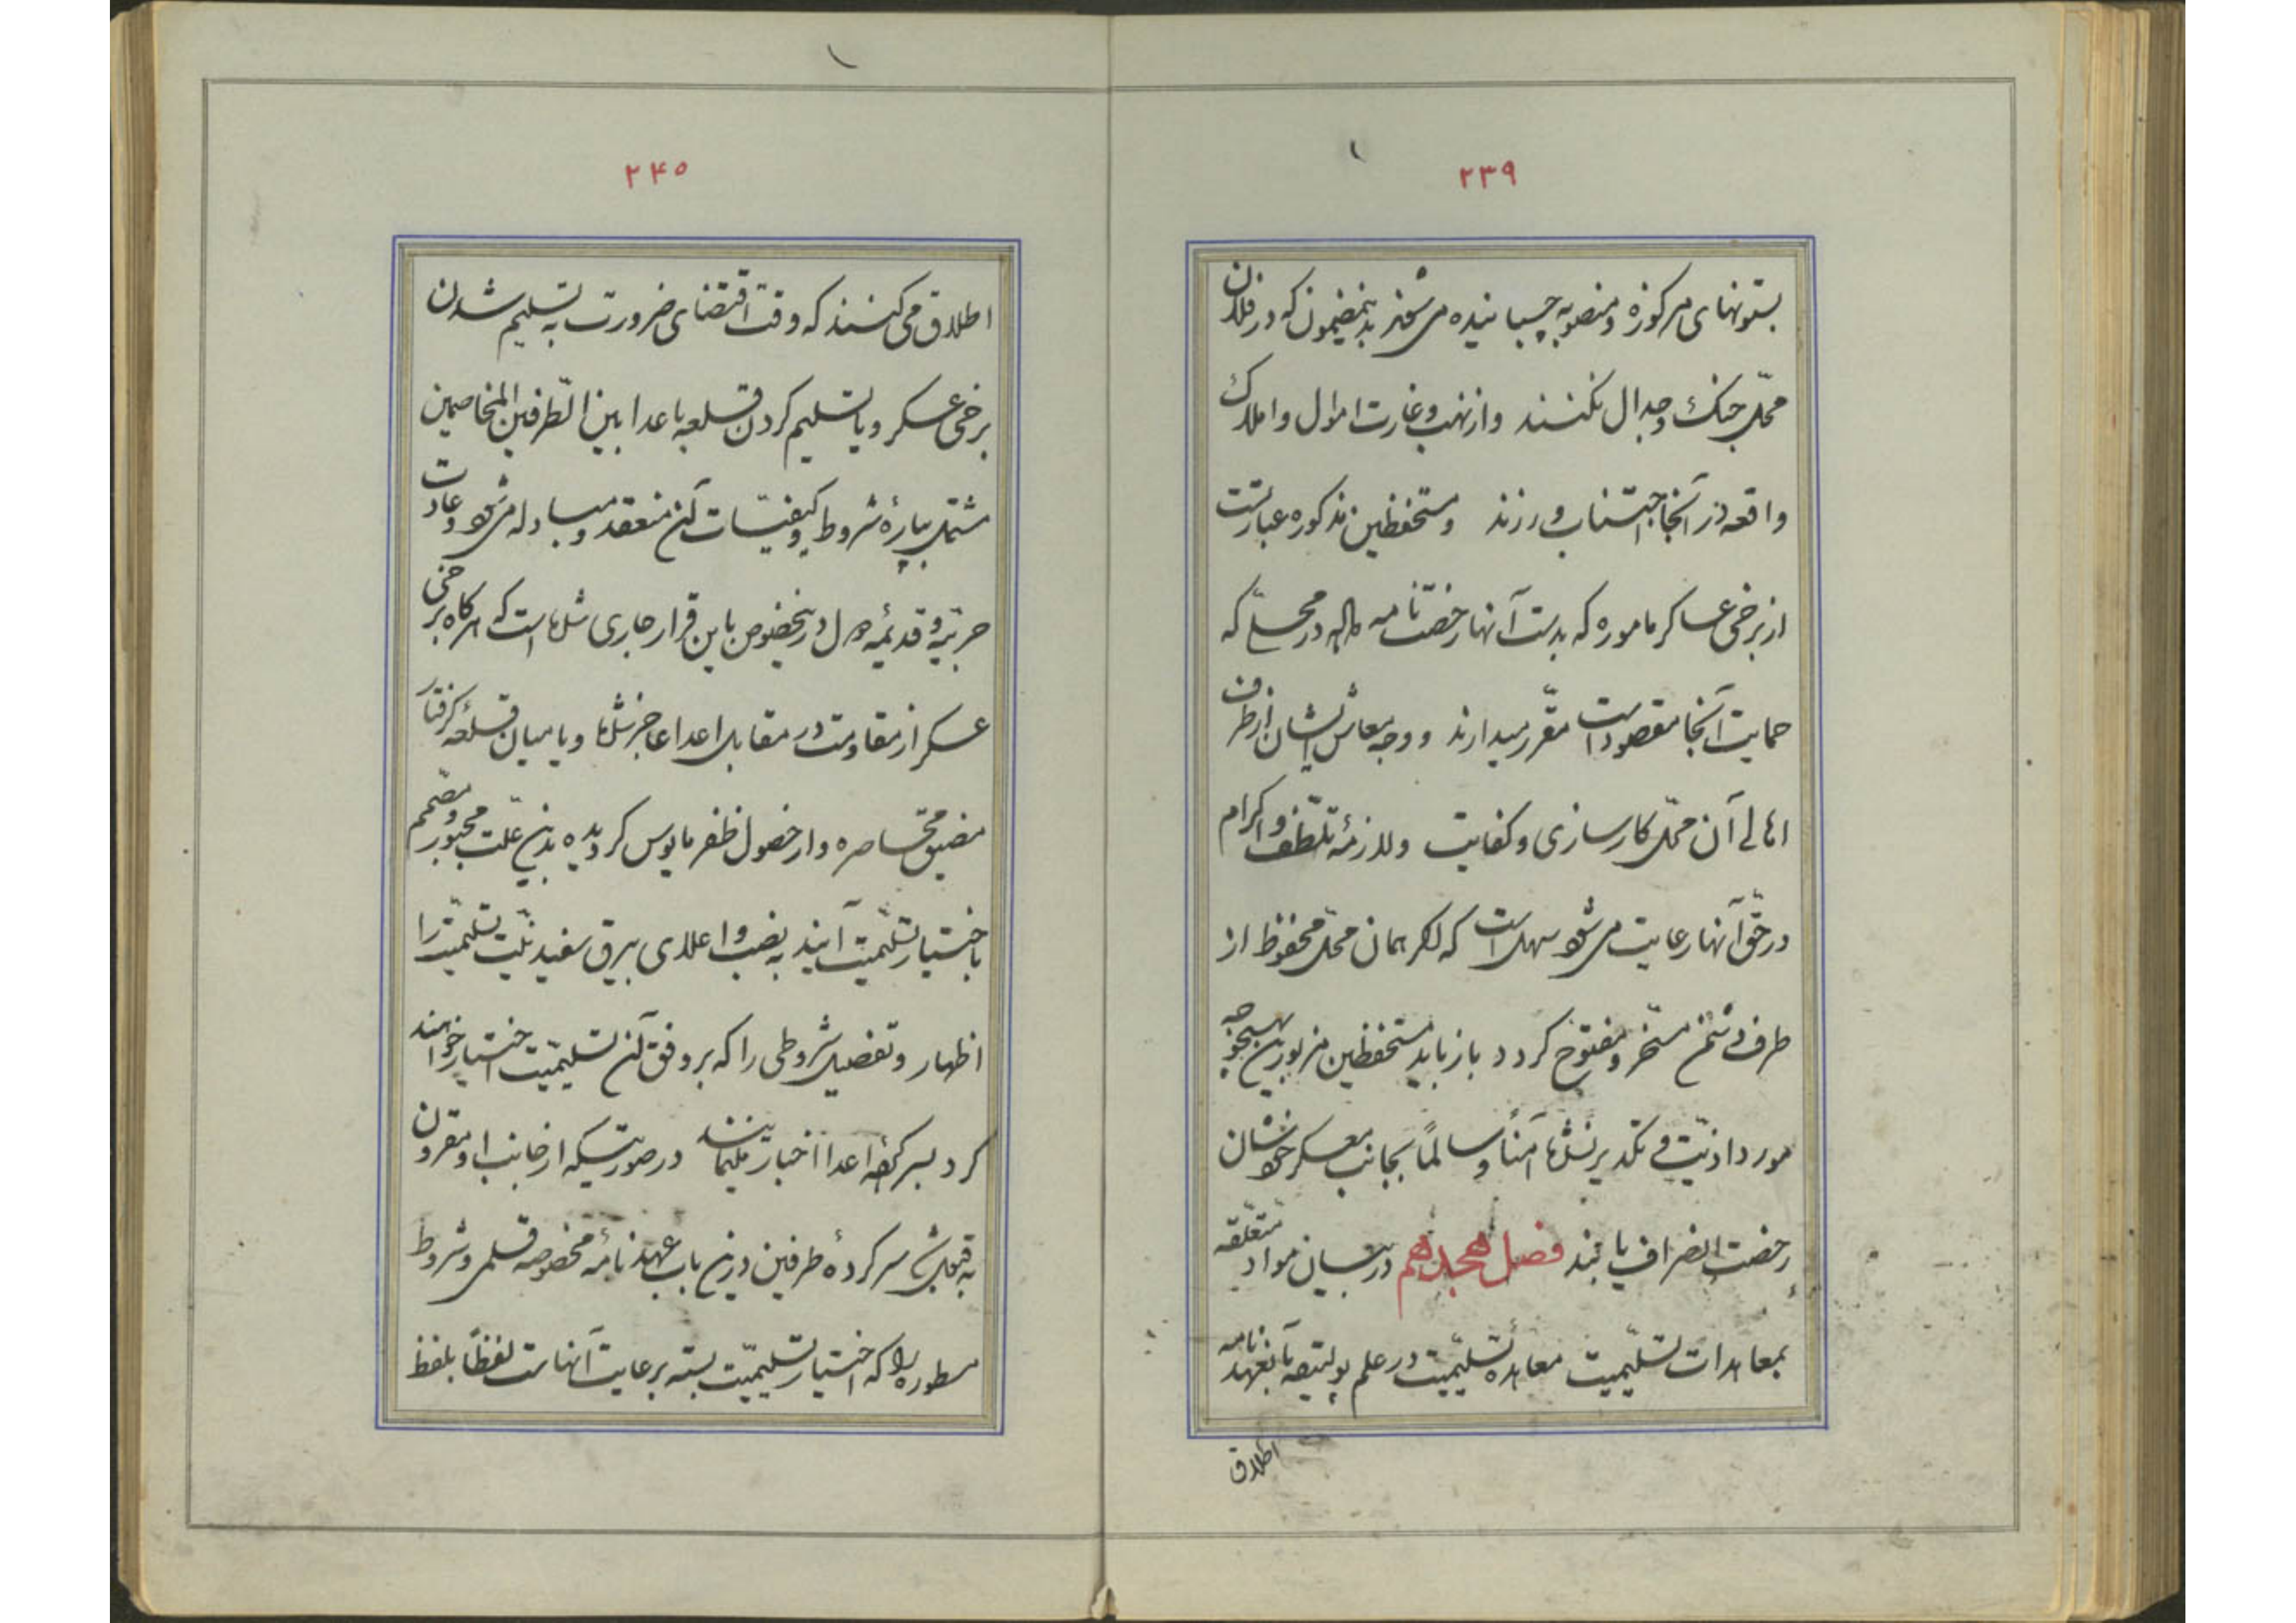 ۲۳۹
بستونهای مرکوزه و منصوبه چسبانیده می‌شوند بدینمضمون که در فلان
محلّ جنک و جدال نکنند و از نهب و غارت اموال و املاک
واقعه در آنجا اجتناب ورزند و مستحفظین مذکوره عبارتست
از برخی عساکر ماموره که بدست آنها رخصتنامه داده در محلّی که
حمایت آنجا مقصود است مقرّر میدارند و وجه معاش ایشان از طرف
اهالی آن محلّ کارسازی و کفایت و لازمهٔ تلطّف و اکرام
در حقّ آنها رعایت می‌شود سهل است که اکر همان محلّ محفوظ از
طرف دشمن مسخّر و مفتوح کردد باز باید مستحفظین مزبورین بهیچوجه
مورد اذیّت و تکدیر نشده آمناً و سالماً بجانب معسکر خودشان
رخصت انصراف یابند فصل هجدهم در بیان مواد متعلّقه
بمعاهدات تسلیمیّت معاهدهٔ تسلیمیّت در علم پولیتیقه بآنعهدنامه
اطلاق
۲۴۰
اطلاق می‌کنند که وقت اقتضای ضرورت به تسلیم شدن
برخی عسکر و یا تسلیم کردن قلعه باعدا بین الطّرفین المتخاصمین
مشتمل بپارهٔ شروط و کیفیّات آن منعقد و مبادله می‌شود و عادت
حربیّه و قدیمهٔ دول درینخصوص باین قرار جاری شده است که هرکاه برخی
عسکر از مقاومت در مقابل اعدا عاجز شده و یا میان قلعه کرفتار
مضیق محاصره و از حصول ظفر مایوس کردیده بدین علّت مجبور و مصمّم
باختیار تسلیمیّت آیند به نصب و اعلای بیرق سفید نیّت تسلیمیّت را
اظهار و تفصیل شروطی را که بر وفق آن تسلیمیّت اختیار خواهند
کرد بسرکردهٔ اعدا اخبار بنمایند در صورتیکه از جانب او مقرون
به قبول شد سرکردهٔ طرفین درین باب عهدنامهٔ مخصوصه قلمی و شروط
مسطوره را که اختیار تسلیمیّت بسته برعایت آنهاست لفظاً بلفظ